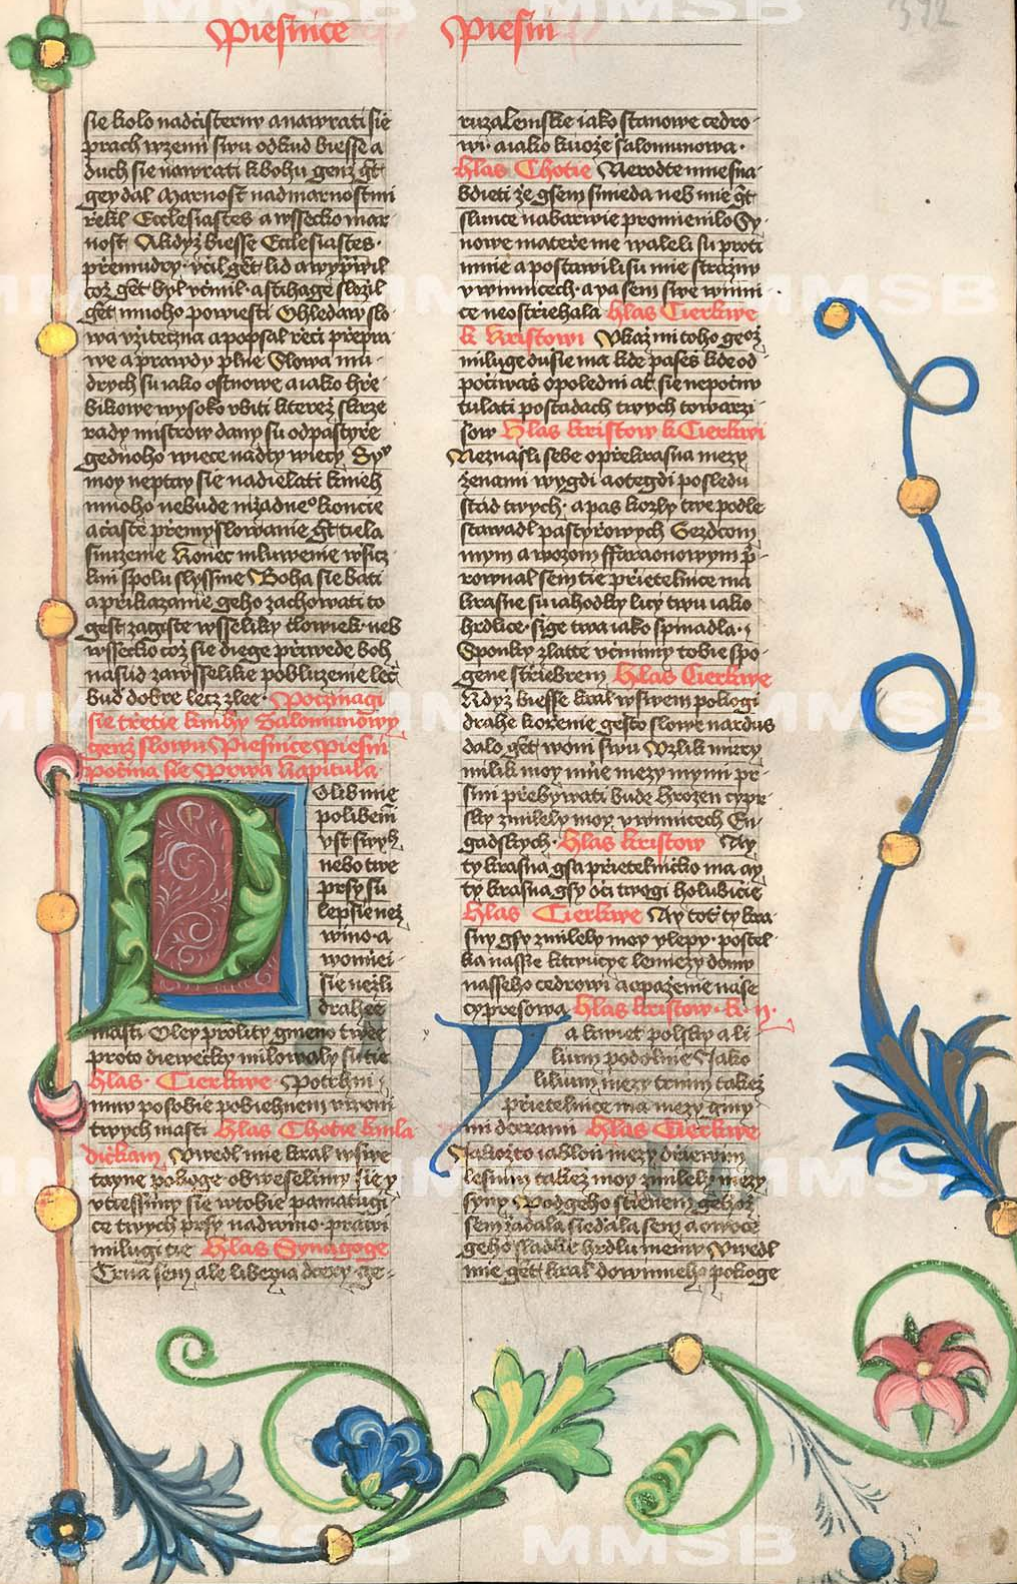 Piesnice Piesni
372
sie kolo nad cisternu a nawrati sie
prach w zemi swu odkud biesse a
duch sie nawrati k bohu genz gt
gey dal Marnost nad marnostmi
rzekl Ecclesiastes a wssecko mar
nost A kdyz biesse Ecclesiastes
przemudry ucil get lid a wyprawil
coz get byl ucinil a stihage slozil
get mnoho powiesti Ohledaw slo
wa uzitecna a popsal rzeci przepra
we a prawdy plne Slowa mu
drych su iako ostnowe a iako hrze
bikowe wysoko wbiti kterez skrze
rady mistrow dany su od pastyrze
gednoho wiece nad ty wiecy Sy
moy neptay sie nadielati knieh
mnoho nebude nizadneo koncie
a czaste przemyslowanie gt tiela
smrzenie Konec mluwenie wsicz
kni spolu slyssme Boha sie bati
a przikazanie geho zachowati to
gest zagiste wsseliky clowiek neb
wssecko coz sie diege przivede boh
na sud za wsselike poblúzenie lec
bud dobre lecz zlee Poczinagi
sie trzetie knihy Salomunowy
genz slowu Piesnice Piesni
Pocina sie Prwa Kapitula
Olib mie
polibenim
ust swych
nebo twe
prsy su
lepsie nez
wino a
wonnei
sie nezli
drahee
masti Oley prolity gmeno twee
proto diewecky milowaly su tie
Hlas Cierkwe Potrhni
mny po sobie pobiehnem u woni
twych masti Hlas Chotie k mla
dickam Uwedl mie kral w swe
tayne pokoge obweselimy sie y
utiessimy sie w tobie pamatugi
ce twych prsy nad wino prawi
milugi tie Hlas Synagoge
Crna sem ale libezna dcery ge
ruzalemske iako stanowe cedro
wi a iako kuoze salomunowa
Hlas Chotie Nerodte mne sna
bdieti ze gsem snieda neb mie gt
slunce na barwie promienilo Sy
nowe materze me waleli su proti
mnie a postawili su mie strazny
u winnicech a ya sem swe winni
ce neostriehala Hlas Cierkwe
k Kristowi Ukaz mi toho geoz
miluge dusie ma kde pases kde od
pocziwas o poledni at sie nepocznu
tulati po stadach twych towarzi
sow Hlas kristow k Cierkwi
Neznasli sebe o przekrasna mezy
zenami wygdi a otegdi po sledu
stad twych a pas kozly twe podle
stawadl pastyrzowych Gezdcom
mym a wozom ffaraonowym p
rownal sem tie przietelnice ma
krasne su iahodky licy twu iako
hrdlice sige twa iako spinadla
Sponky zlatte ucinimy tobie spo
gene striebrem Hlas Cierkwe
Kdyz biesse kral w swem pokogi
drahe korzenie gesto slowe nardus
dalo get woni swu Uzlik mirry
milik moy mie mezy mymi pr
smi przebywati bude Hrozen cypr
sky zmilely moy u winnicech En
gadskych Hlas kristow Ay
ty krasna gsy przietelniczko ma ay
ty krasna gsy oci twogi holubicie
Hlas Cierkwe Ay tot ty kra
sny gsy zmilely moy y lepy postel
ka nasse ktwucye lemiezy domu
nasseho cedrowi a opazenie nasse
cypresowa Hlas kristow k. II.
a kwiet polsky a li
lium podolnie Jako
lilium mezy trnim takez
przietelnice ma mezy gmy
mi dcerami Hlas Cierkwe
Jakozto iablon mezy drziewim
lesnim takez moy zmilely mezy
syny Pod geho stienem gehoz
sem zadala siedala sem a owoce
geho sladke hrdlu memu Uwedl
mie get kral do winneho pokoge